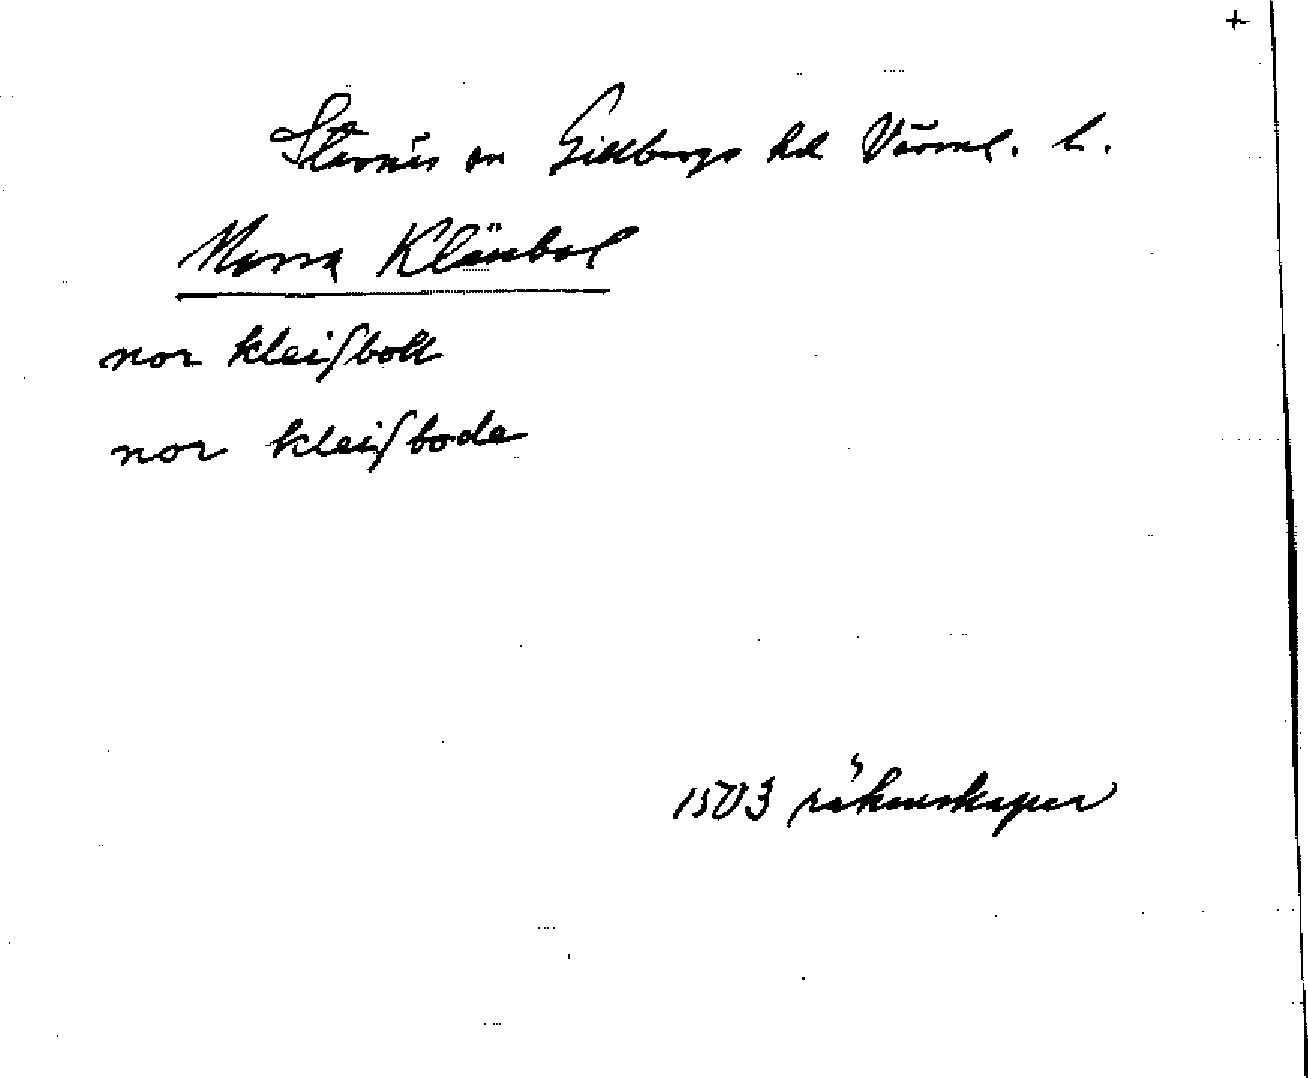 +
Stavnäs sn Gillbergs hd Värml. l.
Norra Kläsbol
nor kleißbolt
nor kleißbode
1503 räkenskaper